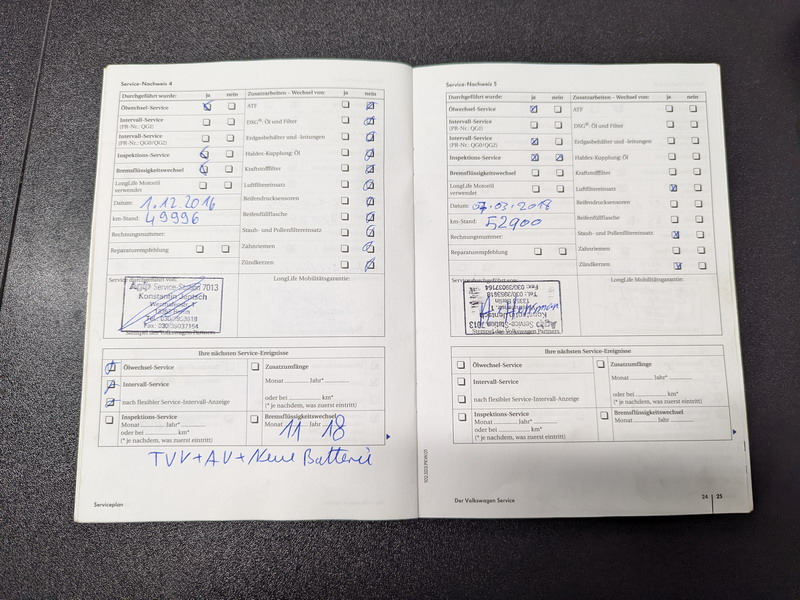 Service-Nachweis 4
Durchgeführt wurde: ja nein
Ölwechsel-Service
Intervall-Service
(PR-Nr.: QG1)
Intervall-Service
(PR-Nr.: QG0/QG2)
Inspektions-Service
Bremsflüssigkeitswechsel
LongLife Motoröl
verwendet
Datum: 1.12.2016
km-Stand: 49996
Rechnungsnummer:
Reparaturempfehlung
Zusatzarbeiten - Wechsel von: ja nein
ATF
DSG®: Öl und Filter
Erdgasbehälter und -leitungen
Haldex-Kupplung: Öl
Kraftstofffilter
Luftfiltereinsatz
Reifendrucksensoren
Reifenfüllflasche
Staub- und Pollenfiltereinsatz
Zahnriemen
Zündkerzen
Service durchgeführt von:
LongLife Mobilitätsgarantie:
Service-Station 7013
Konstantin Jentsch
Stempel des Volkswagen Partners
Ihre nächsten Service-Ereignisse
Ölwechsel-Service
Intervall-Service
nach flexibler Service-Intervall-Anzeige
Inspektions-Service
Monat Jahr*
oder bei km*
(* je nachdem, was zuerst eintritt)
Zusatzumfänge
Monat Jahr*
oder bei km*
(* je nachdem, was zuerst eintritt)
Bremsflüssigkeitswechsel
Monat 11 Jahr 18
TÜV+AU+Neue Batterie
Serviceplan
Service-Nachweis 5
Durchgeführt wurde: ja nein
Ölwechsel-Service
Intervall-Service
(PR-Nr.: QG1)
Intervall-Service
(PR-Nr.: QG0/QG2)
Inspektions-Service
Bremsflüssigkeitswechsel
LongLife Motoröl
verwendet
Datum: 07.03.2018
km-Stand: 52900
Rechnungsnummer:
Reparaturempfehlung
Zusatzarbeiten - Wechsel von: ja nein
ATF
DSG®: Öl und Filter
Erdgasbehälter und -leitungen
Haldex-Kupplung: Öl
Kraftstofffilter
Luftfiltereinsatz
Reifendrucksensoren
Reifenfüllflasche
Staub- und Pollenfiltereinsatz
Zahnriemen
Zündkerzen
Service durchgeführt von:
LongLife Mobilitätsgarantie:
Service-Station 7013
Stempel des Volkswagen Partners
Ihre nächsten Service-Ereignisse
Ölwechsel-Service
Intervall-Service
nach flexibler Service-Intervall-Anzeige
Inspektions-Service
Monat Jahr*
oder bei km*
(* je nachdem, was zuerst eintritt)
Zusatzumfänge
Monat Jahr*
oder bei km*
(* je nachdem, was zuerst eintritt)
Bremsflüssigkeitswechsel
Monat Jahr
Der Volkswagen Service
24 25